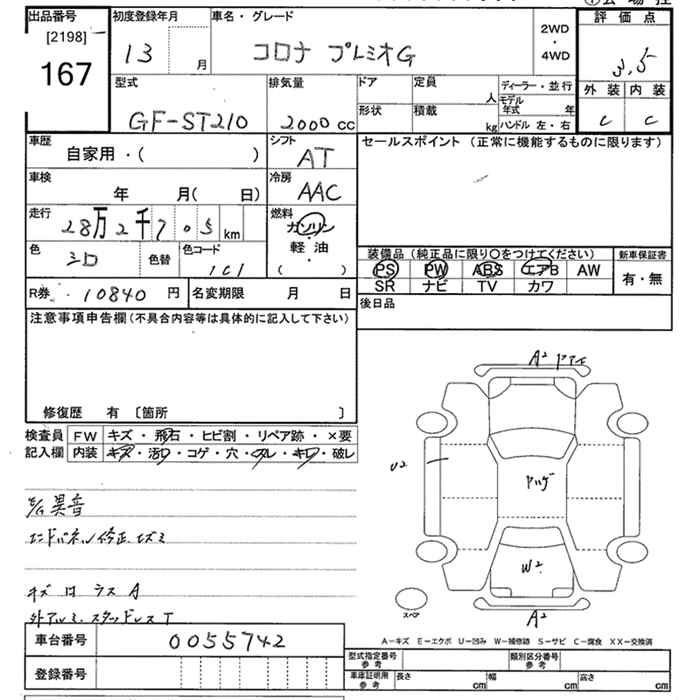 出品番号
[2198]
167
初度登録年月
13
月
車名・グレード
コロナ プレミオG
2WD
・
4WD
評価点
3.5
外装 内装
C C
型式
GF-ST210
排気量
2000 cc
ドア
定員
人
形状
積載
kg
ディーラー・並行
モデル
年式 年
ハンドル 左・右
車歴
自家用・( )
シフト
AT
セールスポイント (正常に機能するものに限ります)
車検
年 月( 日)
冷房
AAC
走行
28万2千705km
燃料
ガソリン
・
軽油
・
( )
色
シロ
色替
色コード
1C1
装備品 (純正品に限り〇をつけてください)
PS PW ABS エアB AW
SR ナビ TV カワ
新車保証書
有・無
R券 10840 円
名変期限 月 日
後日品
注意事項申告欄(不具合内容等は具体的に記入して下さい)
修復歴 有 〔箇所 〕
検査員
記入欄
FW キズ・飛石・ヒビ割・リペア跡・×要
内装 キズ・汚れ・コゲ・穴・スレ・キレ・破レ
異音
エンドパネル修正
キズ
A
外アルミ・スタッドレスT
A2
U2
ヤハゲ
W2
A2
スペア
A-キズ E-エクボ U-凹み W-補修跡 S-サビ C-腐食 XX-交換済
車台番号
0055742
登録番号
型式指定番号
参考
類別区分番号
参考
車庫証明用
参考
長さ cm
幅 cm
高さ cm